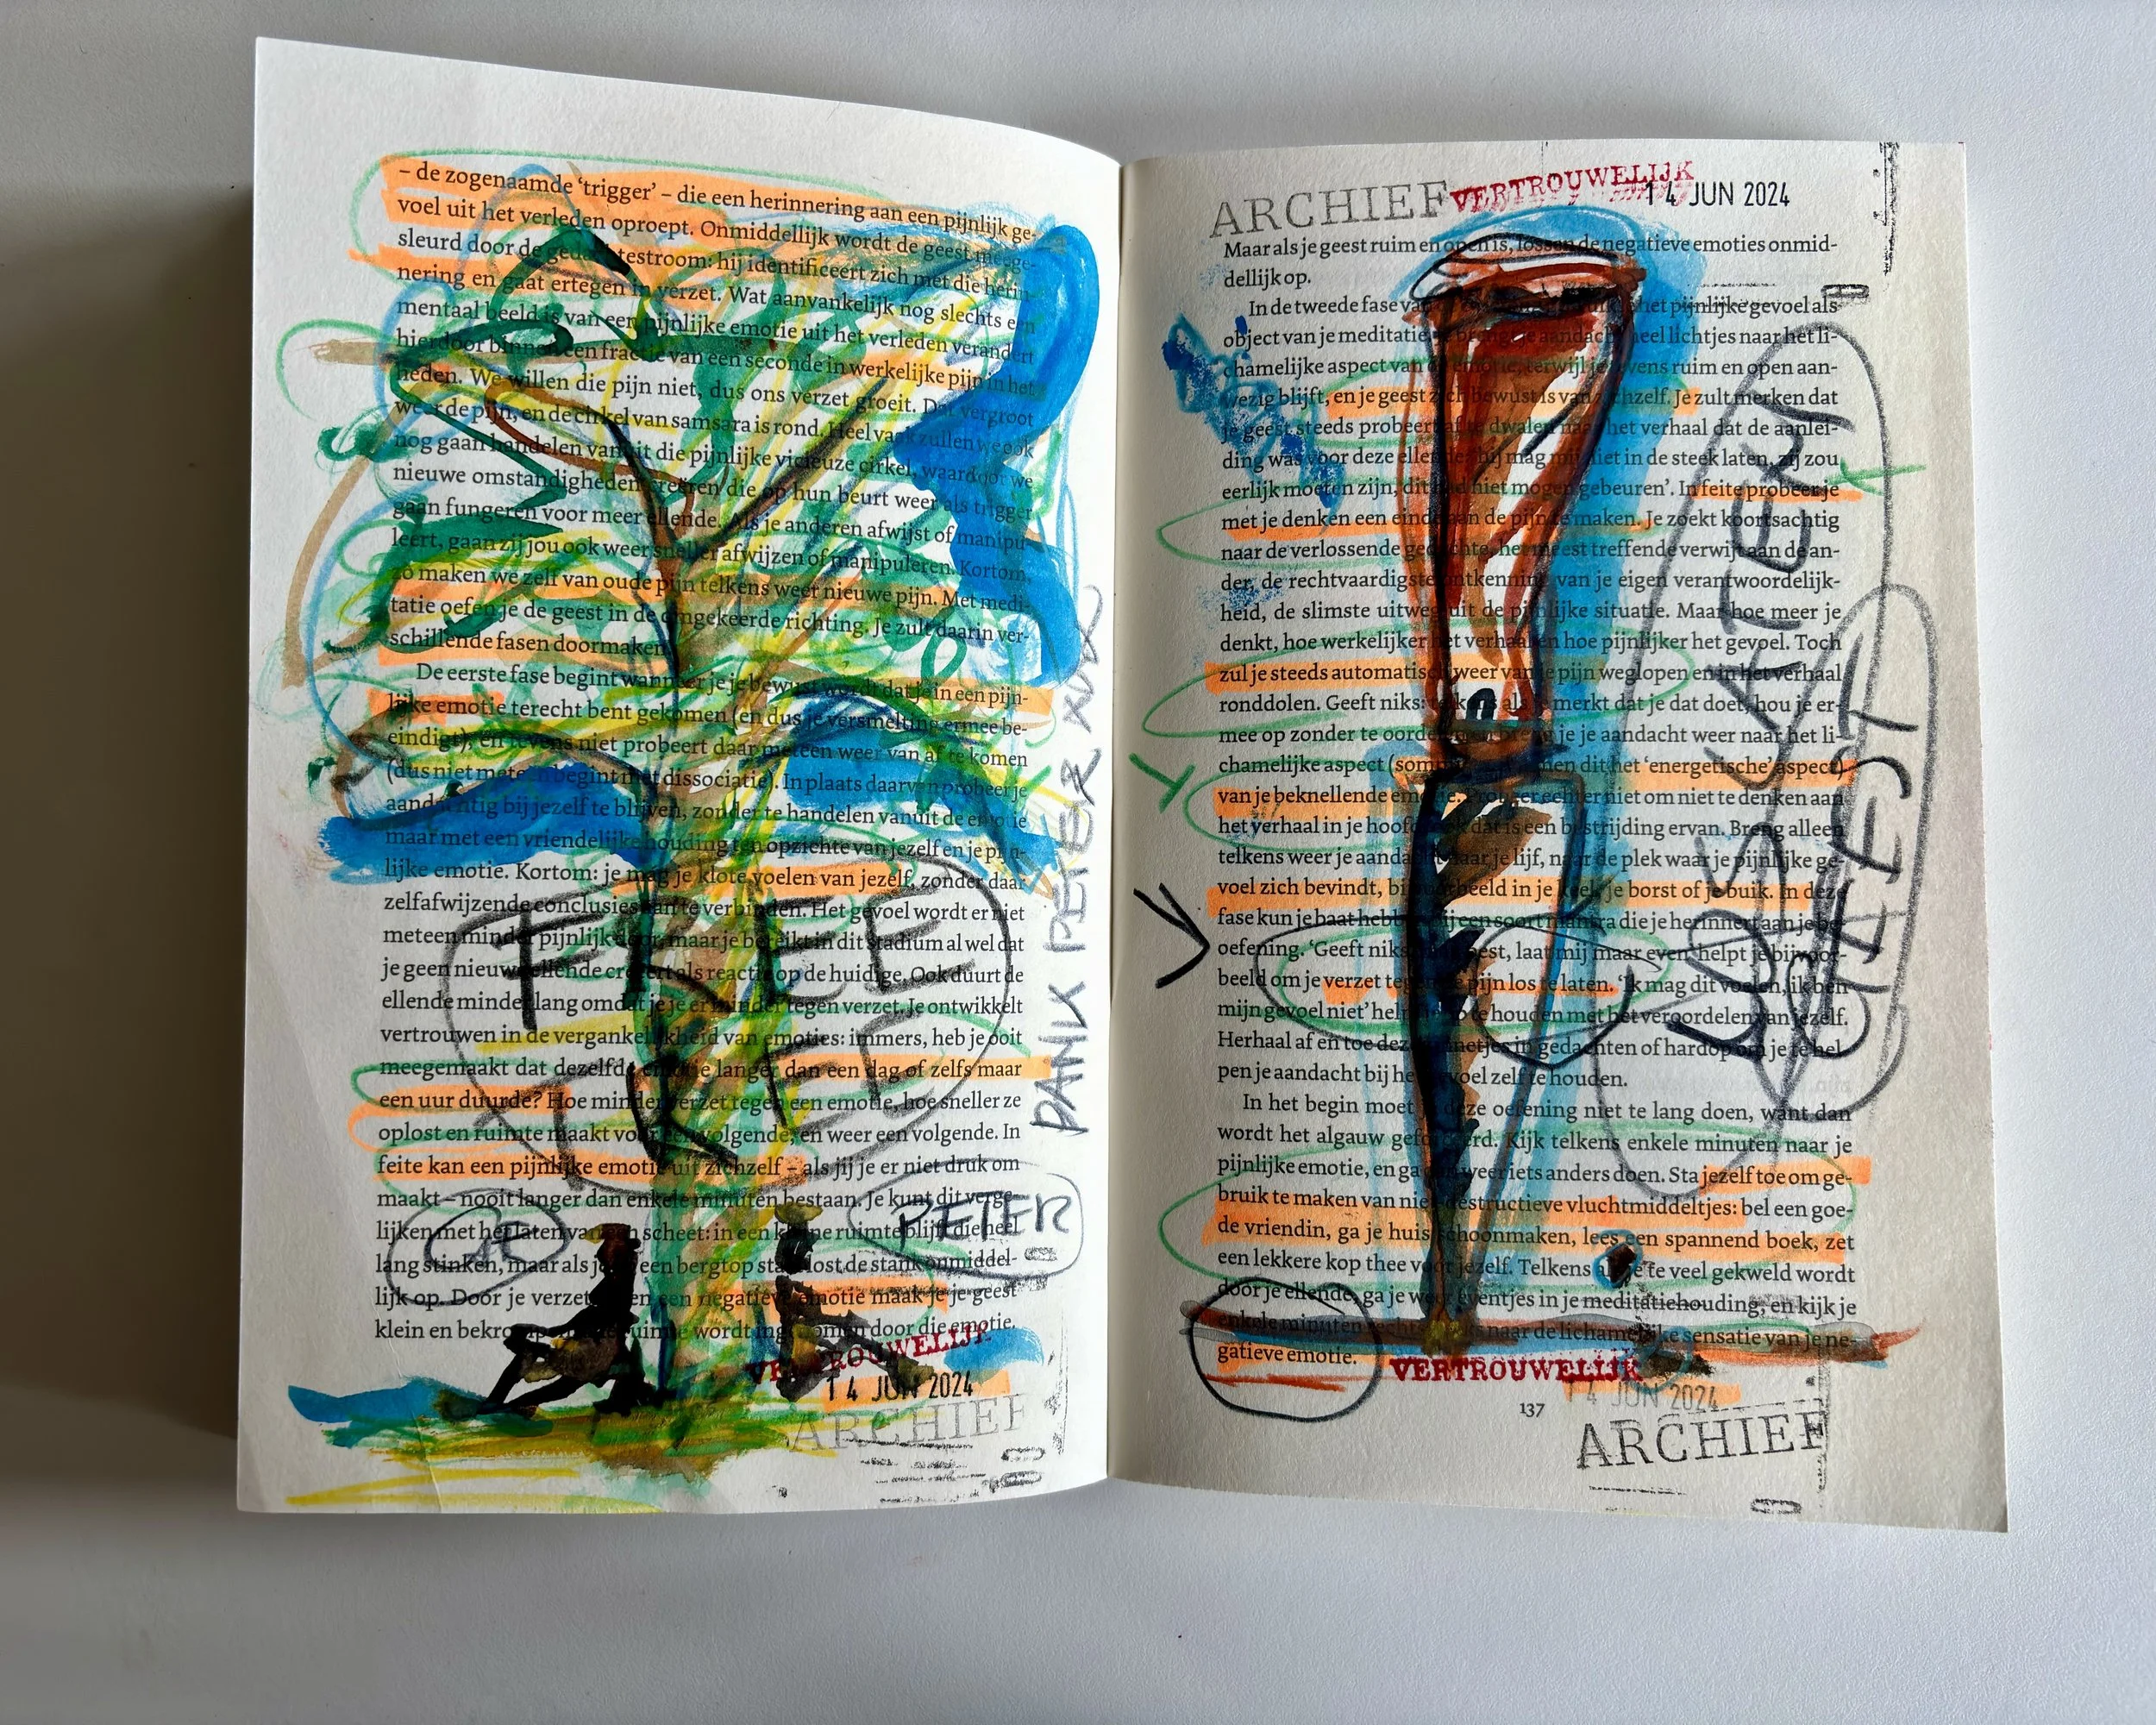 – de zogenaamde ‘trigger’ – die een herinnering aan een pijnlijk ge-
voel uit het verleden oproept. Onmiddellijk wordt de geest meege-
sleurd door de gedachtestroom: hij identificeert zich met die herin-
nering en gaat ertegen in verzet. Wat aanvankelijk nog slechts een
mentaal beeld is van een pijnlijke emotie uit het verleden verandert
hierdoor binnen een fractie van een seconde in werkelijke pijn in het
heden. We willen die pijn niet, dus ons verzet groeit. Dat vergroot
weer de pijn, en de cirkel van samsara is rond. Heel vaak zullen we ook
nog gaan handelen vanuit die pijnlijke vicieuze cirkel, waardoor we
nieuwe omstandigheden creëren die op hun beurt weer als trigger
gaan fungeren voor meer ellende. Als je anderen afwijst of manipu-
leert, gaan zij jou ook weer sneller afwijzen of manipuleren. Kortom,
zo maken we zelf van oude pijn telkens weer nieuwe pijn. Met medi-
tatie oefen je de geest in de omgekeerde richting. Je zult daarin ver-
schillende fasen doormaken.
De eerste fase begint wanneer je je bewust wordt dat je in een pijn-
lijke emotie terecht bent gekomen (en dus je versmelting ermee be-
eindigt), en tevens niet probeert daar meteen weer van af te komen
(dus niet meteen begint met dissociatie). In plaats daarvan probeer je
aandachtig bij jezelf te blijven, zonder te handelen vanuit de emotie
maar met een vriendelijke houding ten opzichte van jezelf en je pijn-
lijke emotie. Kortom: je mag je klote voelen van jezelf, zonder daar
zelfafwijzende conclusies aan te verbinden. Het gevoel wordt er niet
meteen minder pijnlijk door, maar je bereikt in dit stadium al wel dat
je geen nieuwe ellende creëert als reactie op de huidige. Ook duurt de
ellende minder lang omdat je je er minder tegen verzet. Je ontwikkelt
vertrouwen in de vergankelijkheid van emoties: immers, heb je ooit
meegemaakt dat dezelfde emotie langer dan een dag of zelfs maar
een uur duurde? Hoe minder verzet tegen een emotie, hoe sneller ze
oplost en ruimte maakt voor een volgende, en weer een volgende. In
feite kan een pijnlijke emotie uit zichzelf – als jij je er niet druk om
maakt – nooit langer dan enkele minuten bestaan. Je kunt dit verge-
lijken met het laten van een scheet: in een kleine ruimte blijft die heel
lang stinken, maar als je op een bergtop staat lost de stank onmiddel-
lijk op. Door je verzet tegen een negatieve emotie maak je je geest
klein en bekrompen
ruimte wordt ingenomen door die emotie.
DANK PETER XXX
PETER
VERTROUWELIJK
14 JUN 2024
ARCHIEF
ARCHIEF VERTROUWELIJK 14 JUN 2024
Maar als je geest ruim en open is, lossen de negatieve emoties onmid-
dellijk op.
In de tweede fase van
het pijnlijke gevoel als
object van je meditatie. Je brengt je aandacht heel lichtjes naar het li-
chamelijke aspect van de emotie, terwijl je tevens ruim en open aan-
wezig blijft, en je geest zich bewust is van zichzelf. Je zult merken dat
je geest steeds probeert af te dwalen naar het verhaal dat de aanlei-
ding was voor deze ellende: ‘hij mag mij niet in de steek laten, zij zou
eerlijk moeten zijn, dit had niet mogen gebeuren’. In feite probeer je
met je denken een eind aan de pijn te maken. Je zoekt koortsachtig
naar de verlossende gedachte, het meest treffende verwijt aan de an-
der, de rechtvaardigste ontkenning van je eigen verantwoordelijk-
heid, de slimste uitweg uit de pijnlijke situatie. Maar hoe meer je
denkt, hoe werkelijker het verhaal en hoe pijnlijker het gevoel. Toch
zul je steeds automatisch weer van je pijn weglopen en in het verhaal
ronddolen. Geeft niks: telkens als je merkt dat je dat doet, hou je er-
mee op zonder te oordelen en breng je je aandacht weer naar het li-
chamelijke aspect (soms
men dit het ‘energetische’ aspect)
van je beknellende emotie. Probeer echter niet om niet te denken aan
het verhaal in je hoofd, ook dat is een bestrijding ervan. Breng alleen
telkens weer je aandacht naar je lijf, naar de plek waar je pijnlijke ge-
voel zich bevindt, bijvoorbeeld in je keel, je borst of je buik. In deze
fase kun je baat hebben bij een soort mantra die je herinnert aan je be-
oefening. ‘Geeft niks
geest, laat mij maar even’ helpt je bijvoor-
beeld om je verzet tegen de pijn los te laten. ‘Ik mag dit voelen, ik ben
mijn gevoel niet’ helpt
op te houden met het veroordelen van jezelf.
Herhaal af en toe deze zinnetjes in gedachten of hardop om je te hel-
pen je aandacht bij het gevoel zelf te houden.
In het begin moet je deze oefening niet te lang doen, want dan
wordt het algauw geforceerd. Kijk telkens enkele minuten naar je
pijnlijke emotie, en ga dan weer iets anders doen. Sta jezelf toe om ge-
bruik te maken van niet-destructieve vluchtmiddeltjes: bel een goe-
de vriendin, ga je huis schoonmaken, lees een spannend boek, zet
een lekkere kop thee voor jezelf. Telkens als je te veel gekweld wordt
door je ellende, ga je weer eventjes in je meditatiehouding, en kijk je
enkele minuten
naar de lichamelijke sensatie van je ne-
gatieve emotie.
LOSLATEN
GEEST
VERTROUWELIJK
14 JUN 2024
137
ARCHIEF